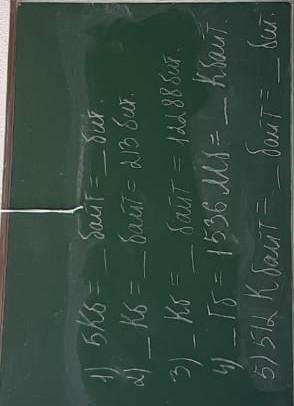 1) 5Кб = _ байт = _ бит.
2) _ Кб = _ байт = 213 бит.
3) _ Кб = _ байт = 12288 бит.
4) _ Гб = 1536 Мб = _ Кбайт.
5) 512 Кбайт = _ байт = _ бит.